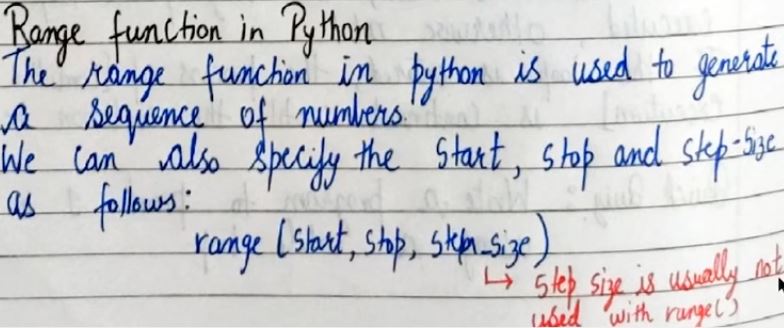 Range function in Python
The range function in python is used to generate
a sequence of numbers.
We can also specify the start, stop and step-size
as follows:
range (start, stop, step_size)
↳ Step size is usually not
used with range()